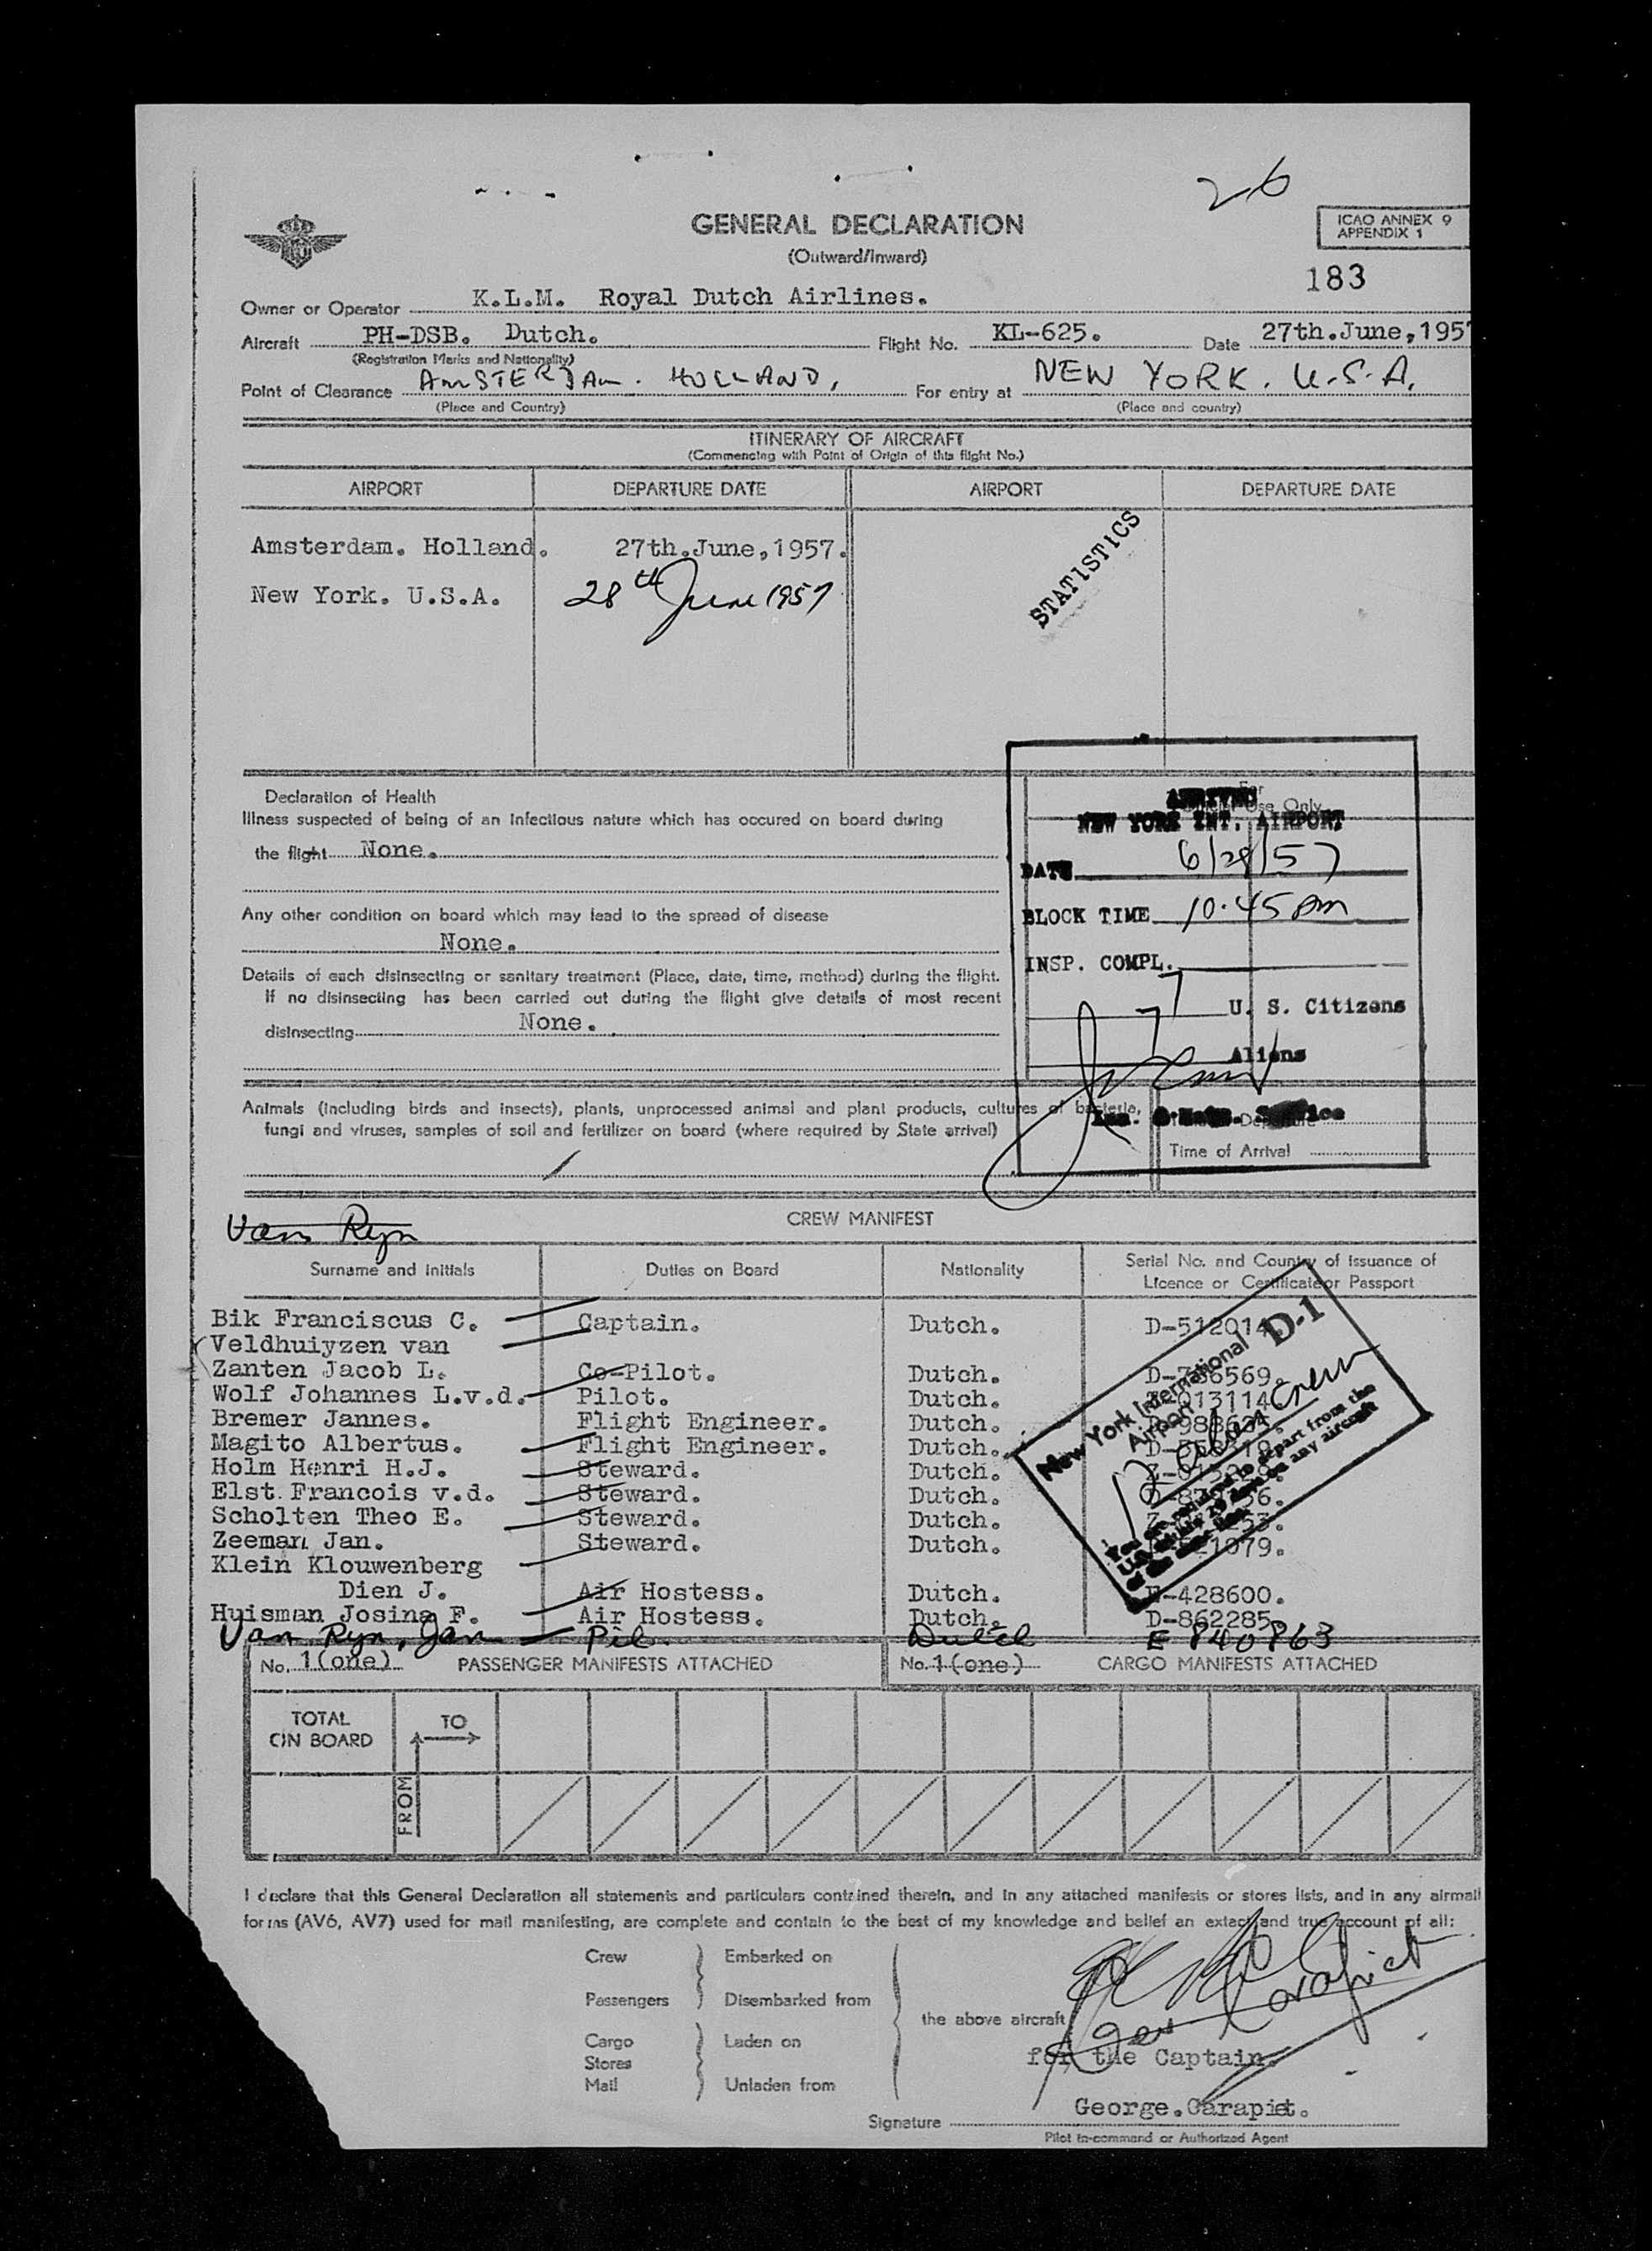 26
GENERAL DECLARATION
(Outward/Inward)
ICAO ANNEX 9
APPENDIX 1
183
Owner or Operator K.L.M. Royal Dutch Airlines.
Aircraft PH-DSB. Dutch. Flight No. KL-625. Date 27th.June,195
(Registration Marks and Nationality)
Point of Clearance AMSTERDAM. HOLLAND, For entry at NEW YORK. U.S.A.
(Place and Country) (Place and country)
ITINERARY OF AIRCRAFT
(Commencing with Point of Origin of this flight No.)
AIRPORT DEPARTURE DATE AIRPORT DEPARTURE DATE
Amsterdam. Holland. 27th.June,1957.
New York. U.S.A. 28th June 1957
STATISTICS
Declaration of Health
Illness suspected of being of an infectious nature which has occured on board during
the flight None.
Any other condition on board which may lead to the spread of disease
None.
Details of each disinsecting or sanitary treatment (Place, date, time, method) during the flight.
If no disinsecting has been carried out during the flight give details of most recent
disinsecting None.
For
Use Only
ARRIVED
NEW YORK INT. AIRPORT
DATE 6/28/57
BLOCK TIME 10.45 pm
INSP. COMPL.
U. S. Citizens
Aliens
Animals (including birds and insects), plants, unprocessed animal and plant products, cultures of bacteria,
fungi and viruses, samples of soil and fertilizer on board (where required by State arrival)
Time of Arrival
CREW MANIFEST
Van Ryn
Surname and Initials Duties on Board Nationality Serial No. and Country of Issuance of
Licence or Certificate or Passport
Bik Franciscus C. Captain. Dutch. D-512014.
Veldhuiyzen van
Zanten Jacob L. Co-Pilot. Dutch. 6569.
Wolf Johannes L.v.d. Pilot. Dutch. 013114
Bremer Jannes. Flight Engineer. Dutch.
Magito Albertus. Flight Engineer. Dutch.
Holm Henri H.J. Steward. Dutch.
Elst Francois v.d. Steward. Dutch.
Scholten Theo E. Steward. Dutch.
Zeeman Jan. Steward. Dutch. 1079.
Klein Klouwenberg
Dien J. Air Hostess. Dutch. -428600.
Huisman Josina F. Air Hostess. Dutch. D-862285
Van Ryn, Jan Pil. Dutch E 840863
New York International D-1
Airport
Crew
You are required to depart from the
U.S. within 29 days on any aircraft
of the same line
No. 1(one) PASSENGER MANIFESTS ATTACHED No. 1(one) CARGO MANIFESTS ATTACHED
TOTAL
ON BOARD
TO
FROM
I declare that this General Declaration all statements and particulars contained therein, and in any attached manifests or stores lists, and in any airmail
forms (AV6, AV7) used for mail manifesting, are complete and contain to the best of my knowledge and belief an extact and true account of all:
Crew Embarked on
Passengers Disembarked from
the above aircraft
Cargo Laden on
Stores
Mail Unladen from
for the Captain.
George.Carapiet.
Signature
Pilot in-command or Authorized Agent